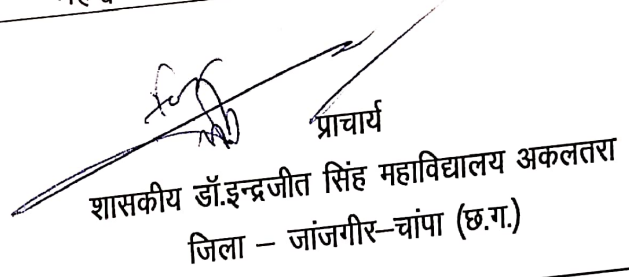 प्राचार्य
शासकीय डॉ.इन्द्रजीत सिंह महाविद्यालय अकलतरा
जिला – जांजगीर–चांपा (छ.ग.)